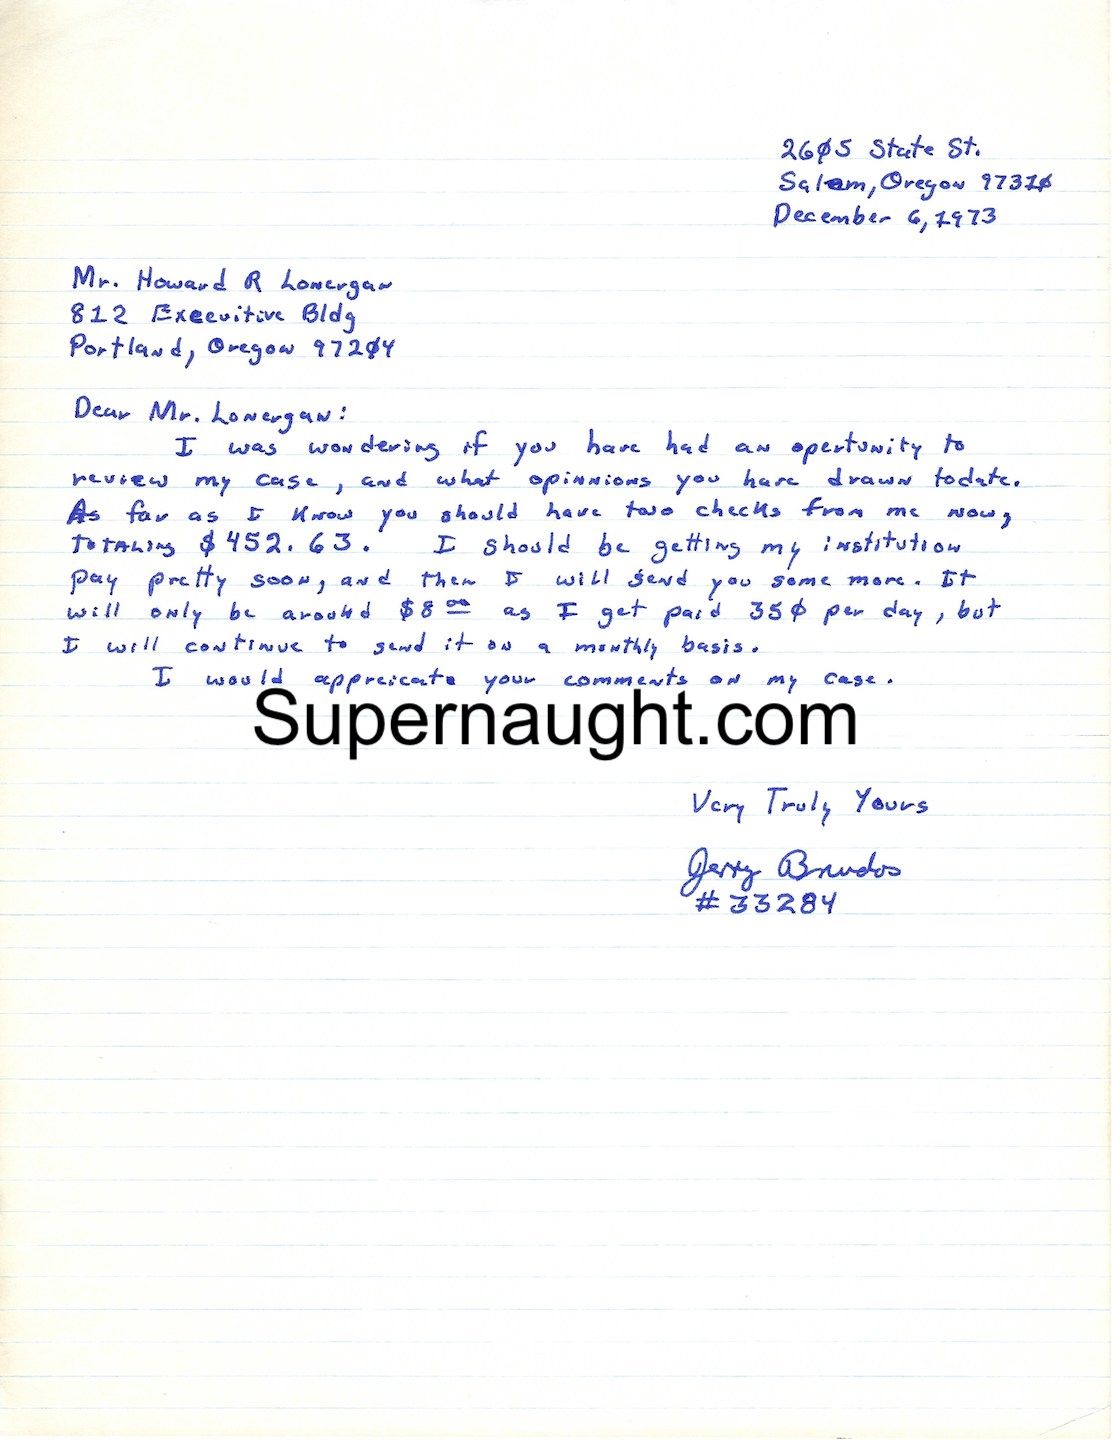 2605 State St.
Salem, Oregon 97310
December 6, 1973
Mr. Howard R Lonergan
812 Exeevitive Bldg
Portland, Oregon 97204
Dear Mr. Lonergan:
I was wondering if you have had an opertunity to
review my case, and what opinnions you have drawn todate.
As far as I know you should have two checks from me now,
totaling $452.63. I should be getting my institution
pay pretty soon, and then I will send you some more. It
will only be around $8.00 as I get paid 35¢ per day, but
I will continue to send it on a monthly basis.
I would appreicate your comments on my case.
Supernaught.com
Very Truly Yours
Jerry Brudos
#33284